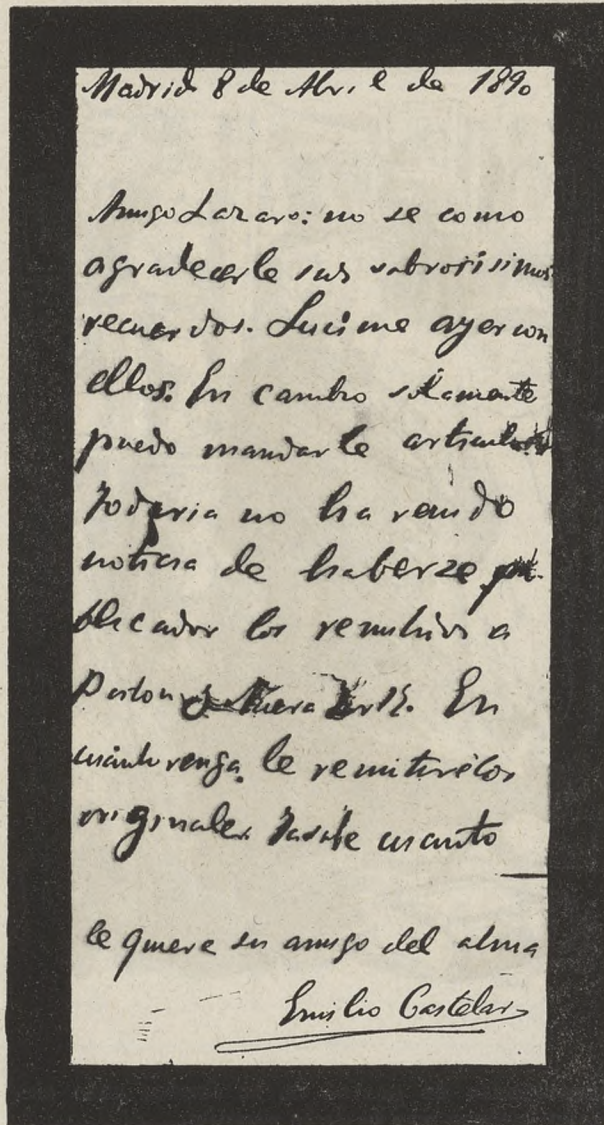 Madrid 8 de Abril de 1890
Amigo Lazaro: no se como
agradecerle sus sabrosisimos
recuerdos. Lucime ayer con
ellos. En cambio solamente
puedo mandarle articulos
Todavia no ha venido
noticia de haberse pu
blicados los remitidos a
Boston y Nueva York. En
cuánto venga, le remitirélos
originales. Sabe cuanto
le quiere su amigo del alma
Emilio Castelar